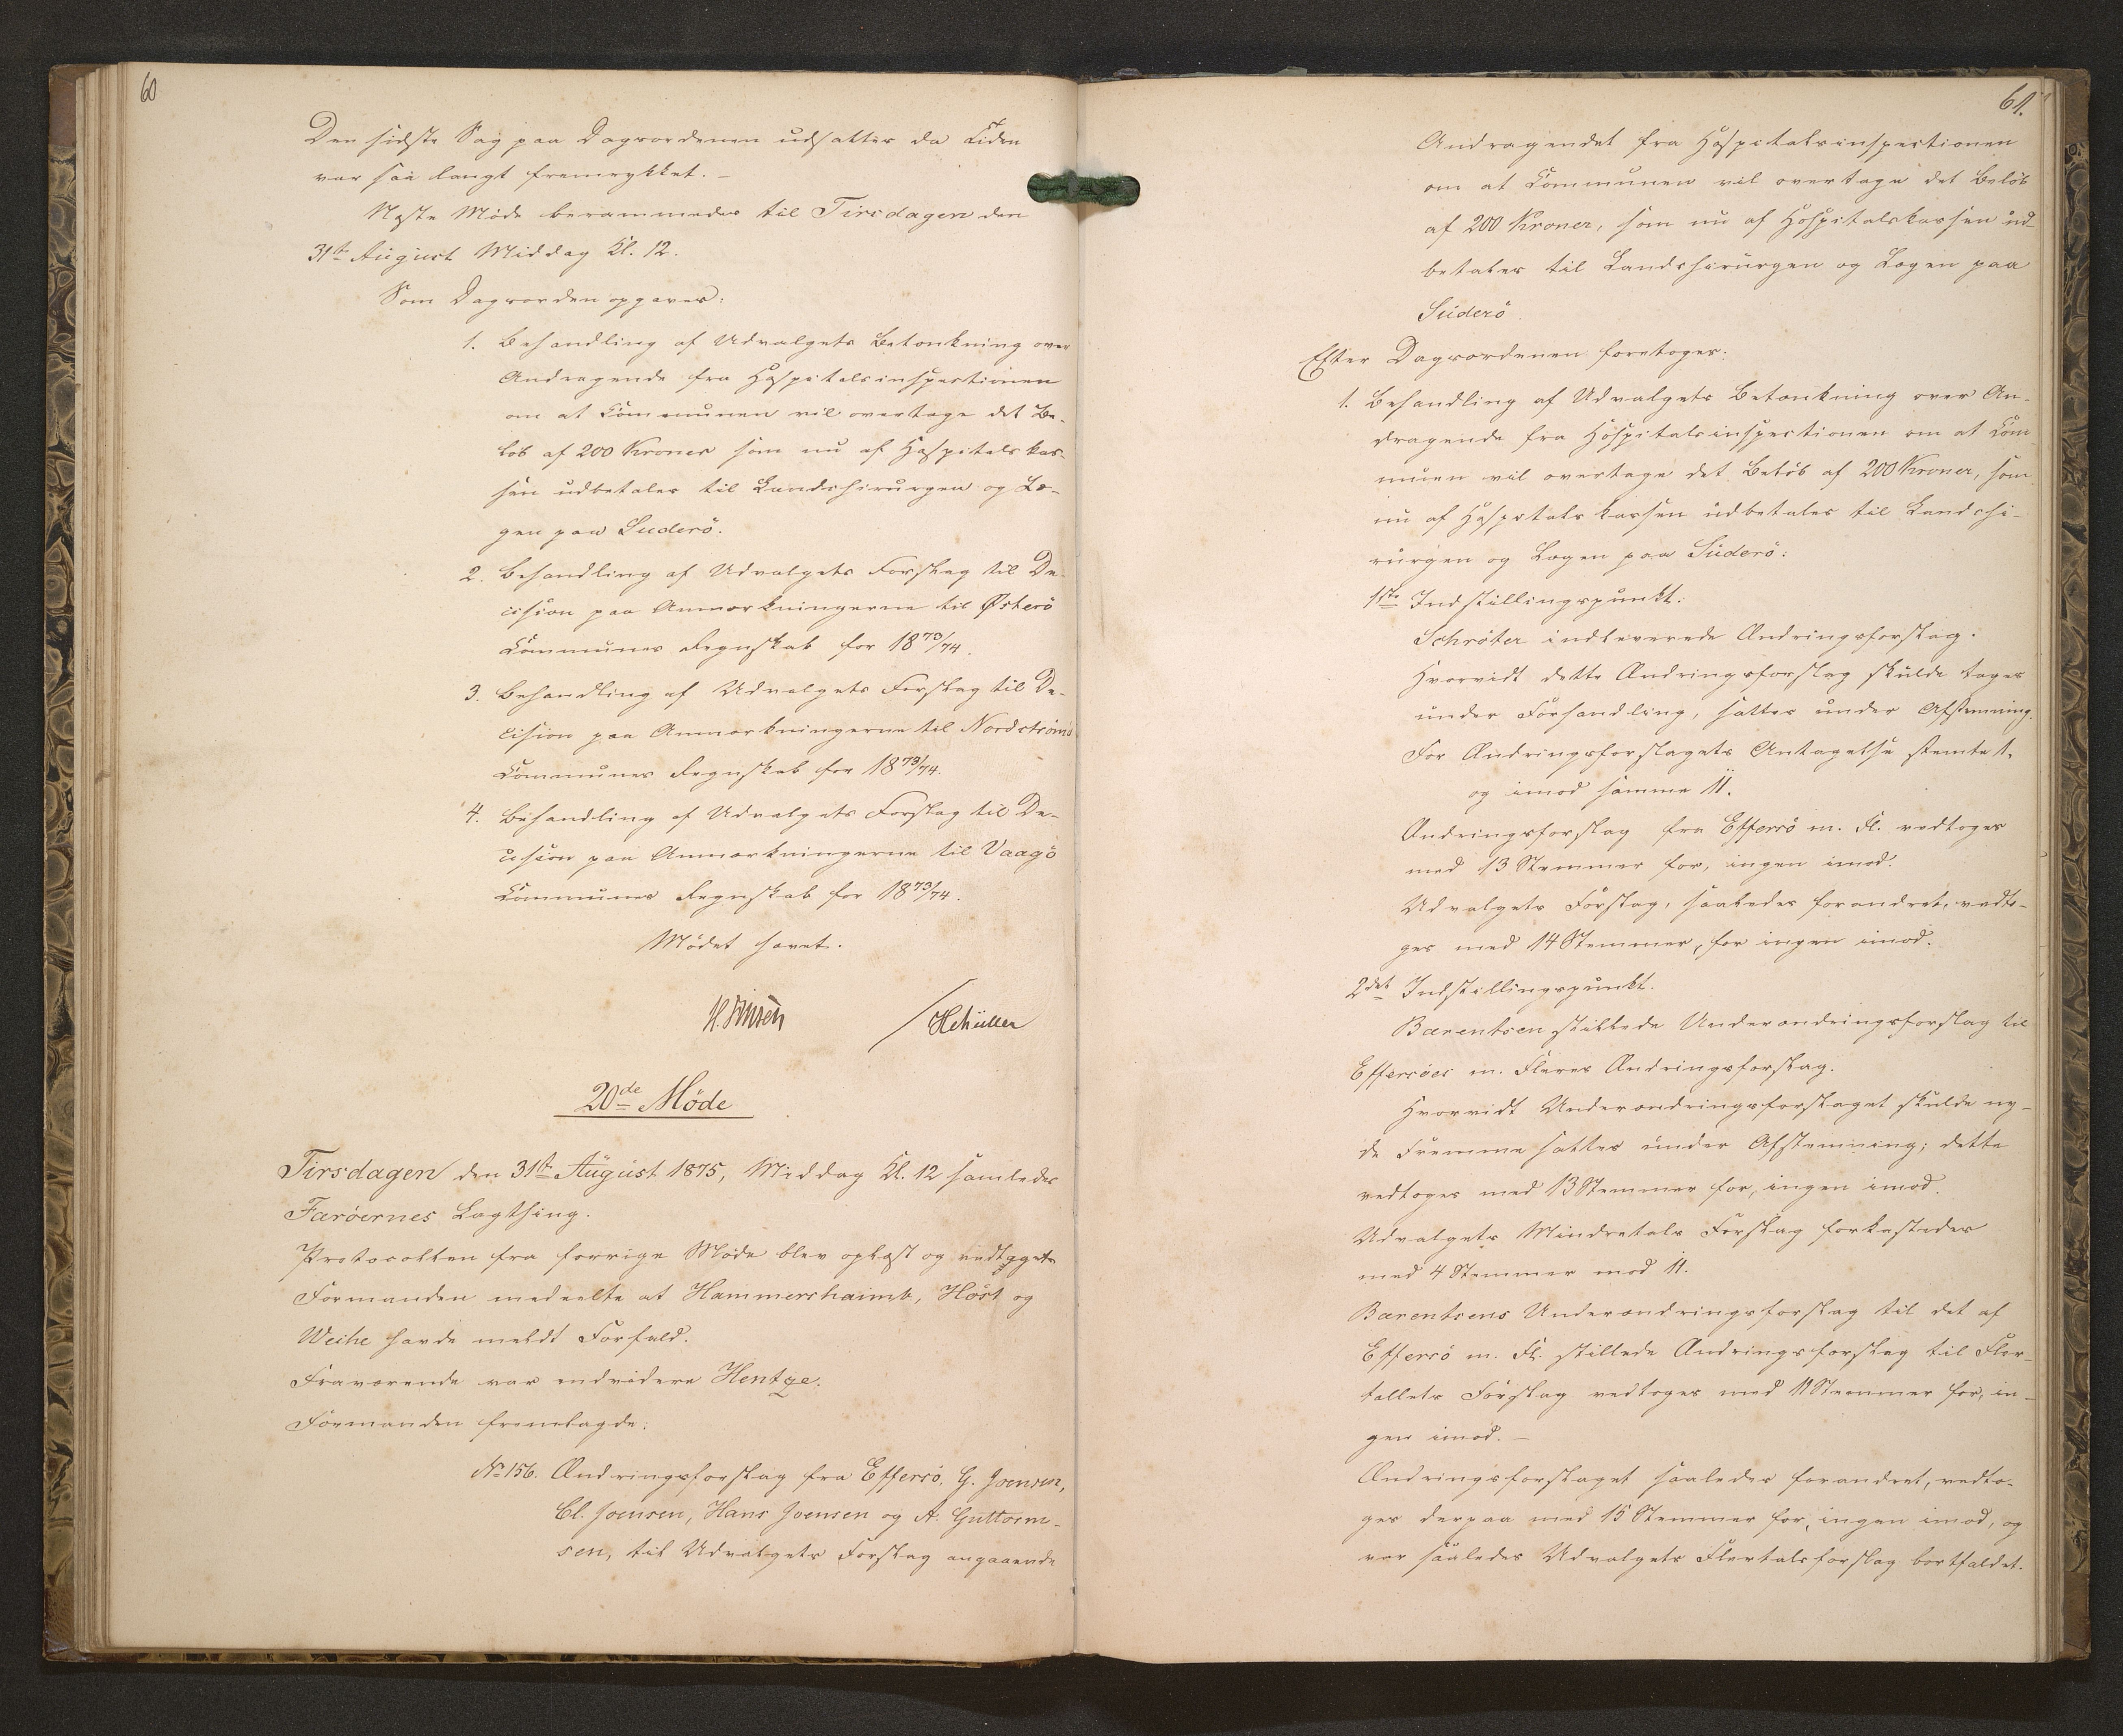 60
Den sidste Sag paa Dagsordenen udsattes da Tiden
var saa langt fremrykket. –
Næste Møde berammedes til Tirsdagen den
31te August Middag Kl. 12.
Som Dagsorden opgaves:
1. Behandling af Udvalgets Betænkning over
Andragende fra Hospitalsinspectionen
om at Communen vil overtage det Be-
løb af 200 Kroner som nu af Hospitalskas-
sen udbetales til Landchirurgen og Læ-
gen paa Suderö.
2. Behandling af Udvalgets Forslag til De-
cision paa Anmærkningerne til Østerö
Communes Regnskab for 1873/74.
3. Behandling af Udvalgets Forslag til De-
cision paa Anmærkningerne til Nordströmö
Communes Regnskab for 1873/74.
4. Behandling af Udvalgets Forslag til De-
cision paa Anmærkningerne til Vaagö
Communes Regnskab for 1873/74.
Mødet hævet.
H. Finsen /HMüller
20de Møde
Tirsdagen den 31te August 1875, Middag Kl. 12 samledes
Færöernes Lagthing.
Protocollen fra forrige Møde blev oplæst og vedtaget.
Formanden meddelte at Hammershaimb, Höst og
Weihe havde meldt Forfald.
Fraværende var endvidere Hentze.
Formanden fremlagde:
No 156. Ændringsforslag fra Effersö, G. Joensen,
Cl. Joensen, Hans Joensen og A. Guttorm-
sen, til Udvalgets Forslag angaaende
61.
Andragendet fra Hospitalsinspectionen
om at Communen vil overtage det Beløb
af 200 Kroner, som nu af Hospitalskassen ud-
betales til Landchirurgen og Lægen paa
Suderö.
Efter Dagsordenen foretoges:
1. Behandling af Udvalgets Betænkning over An-
dragende fra Hospitalsinspectionen om at Com-
munen vil overtage det Beløb af 200 Kroner, som
nu af Hospitalskassen udbetales til Landchi-
rurgen og Lægen paa Suderö:
1ste Indstillingspunkt:
Schröter indleverede Ændringsforslag.
Hvorvidt dette Ændringsforslag skulde tages
under Forhandling, sattes under Afstemning.
For Ændringsforslagets Antagelse stemte 1.
og imod samme 11.
Ændringsforslag fra Effersö m. Fl. vedtoges
med 13 Stemmer for, ingen imod.
Udvalgets Forslag, saaledes forandret, vedto-
ges med 14 Stemmer, for ingen imod.
2det Indstillingspunkt.
Bærentsen stillede Underændringsforslag til
Effersöes m. Fleres Ændringsforslag.
Hvorvidt Underændringsforslaget skulde ny-
de Fremme sattes under Afstemning; dette
vedtoges med 13 Stemmer for, ingen imod.
Udvalgets Mindretals Forslag forkastedes
med 4 Stemmer mod 11.
Bærentsens Underændringsforslag til det af
Effersö m. Fl. stillede Ændringsforslag til Fler-
tallets Forslag vedtoges med 11 Stemmer for, in-
gen imod. –
Ændringsforslaget saaledes forandret, vedto-
ges derpaa med 15 Stemmer for, ingen imod, og
var saaledes Udvalgets Flertalsforslag bortfaldet.